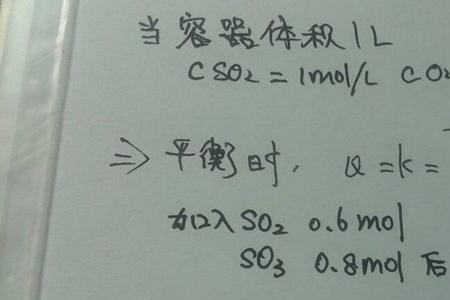 当容器体积1L
CSO2=1mol/L CO2
⇒平衡时, Q=K=
加入SO2 0.6mol
SO3 0.8mol后